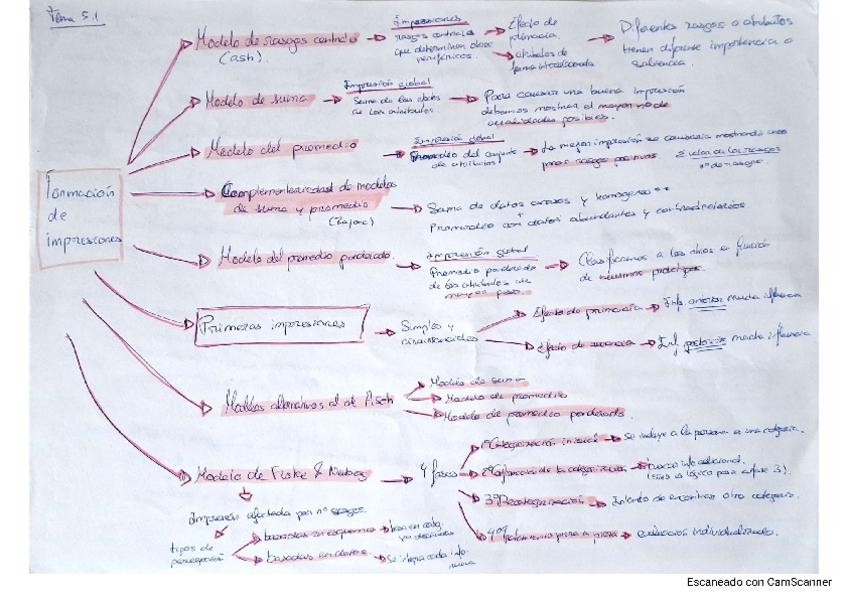 Tema 5.1
Formación
de
impresiones
Modelo de rasgos centrales
(Asch).
Impresiones
rasgos centrales
que determinan otros
periféricos.
Efecto de
primacía.
atributos de
forma interrelacionada
Diferentes rasgos o atributos
tienen diferente importancia o
saliencia.
Modelo de suma
Impresión global
Suma de los
de los atributos
Para causar una buena impresión
debemos mostrar el mayor nº de
cualidades posibles.
Modelo del promedio
Impresión global
Promedio del conjunto
de atributos
La mejor impresión se causaría mostrando unos
pocos rasgos positivos
nº de rasgos.
Complementariedad de modelos
de suma y promedio
Suma de datos escasos y homogéneos
Promedio con datos abundantes y contradictorios
Modelo del promedio ponderado.
Impresión global
Promedio ponderado
de los atributos de
mayor peso.
Clasificamos a los otros en función
de nuestros prototipos.
Primeras impresiones
Simples y
circunstanciales
Efecto de primacía
Inf. anterior mucha influencia
Efecto de recencia
Inf. posterior mucha influencia
Modelos alternativos al de Asch
Modelo de suma
Modelo de promedio
Modelo de promedio ponderado.
Modelo de Fiske & Neuberg
4 fases
1º Categorización inicial
Se incluye a la persona en una categoría.
2º Confirmación de la categorización
Buscar info adicional.
(Si no es lógico para a fase 3).
3º Recategorización
Intento de encontrar otra categoría.
4º Tratamiento pieza a pieza
evaluación individualizada.
Impresión afectada por nº rasgos
tipos de
percepción
basadas en esquemas
basadas en datos
Se integra cada info
nueva
Escaneado con CamScanner